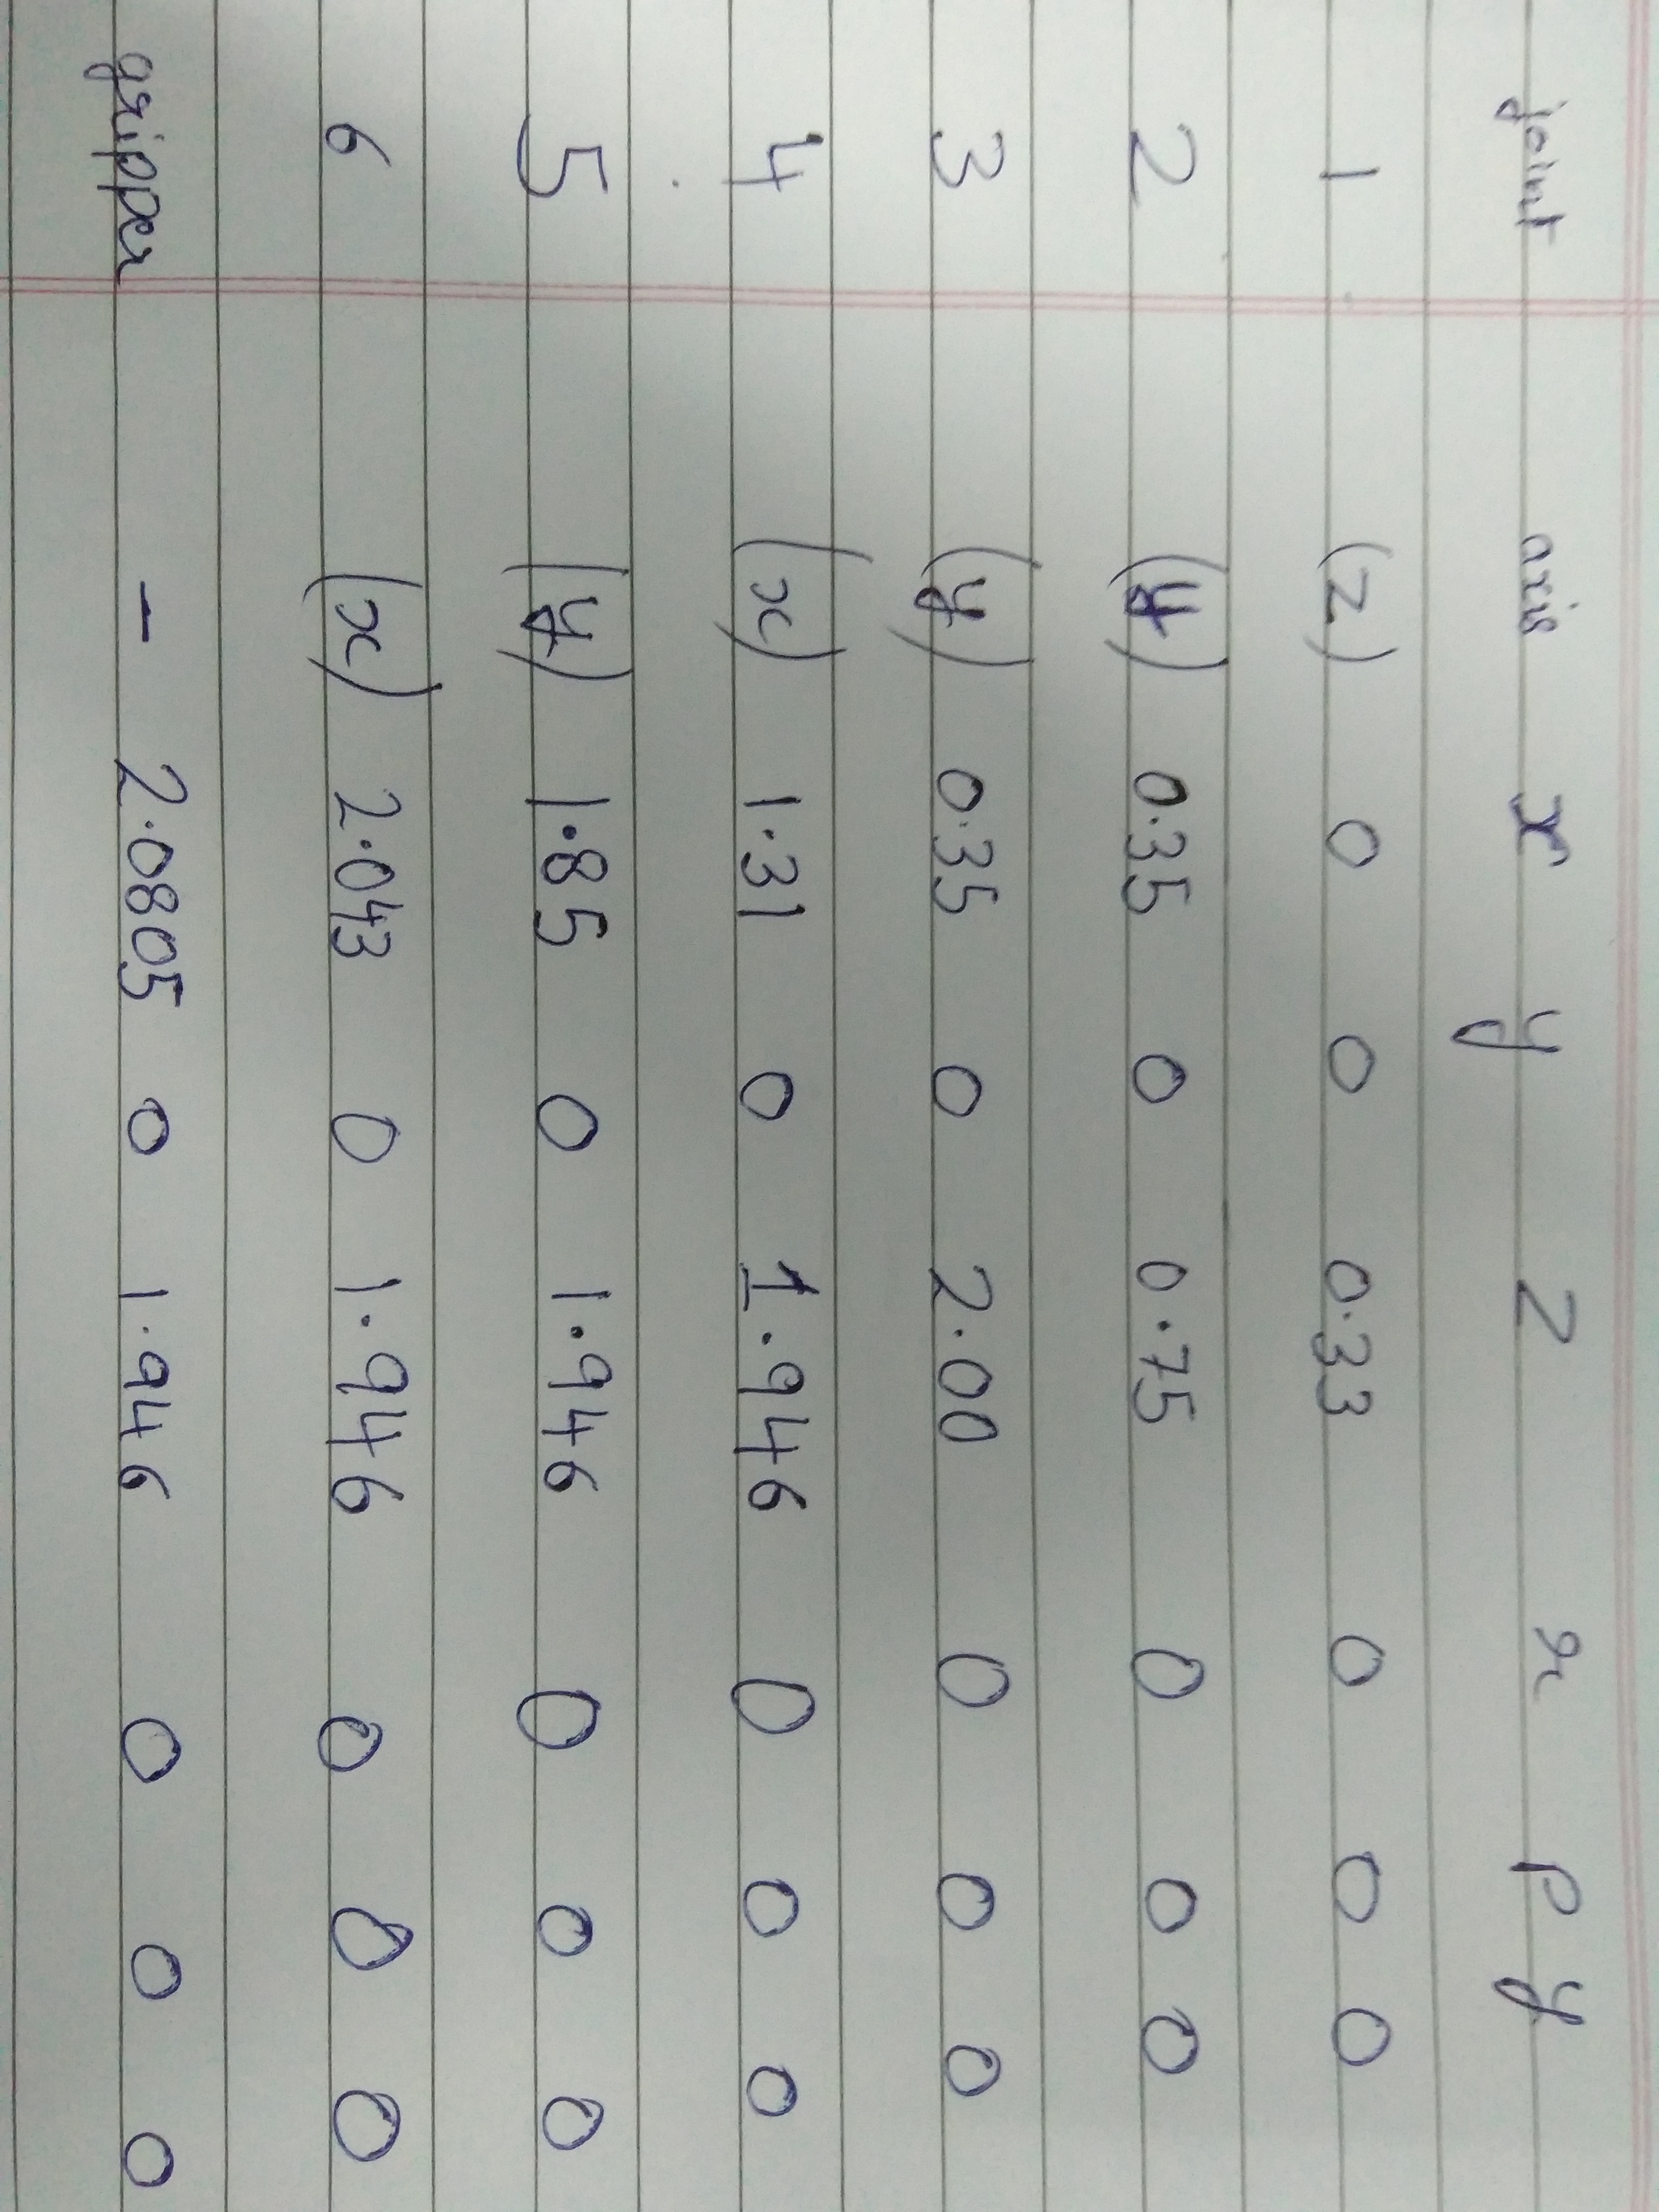 joint axis x y z r p y
1 (z) 0 0 0.33 0 0 0
2 (y) 0.35 0 0.75 0 0 0
3 (y) 0.35 0 2.00 0 0 0
4 (x) 1.31 0 1.946 0 0 0
5 (y) 1.85 0 1.946 0 0 0
6 (x) 2.043 0 1.946 0 0 0
gripper — 2.0805 0 1.946 0 0 0